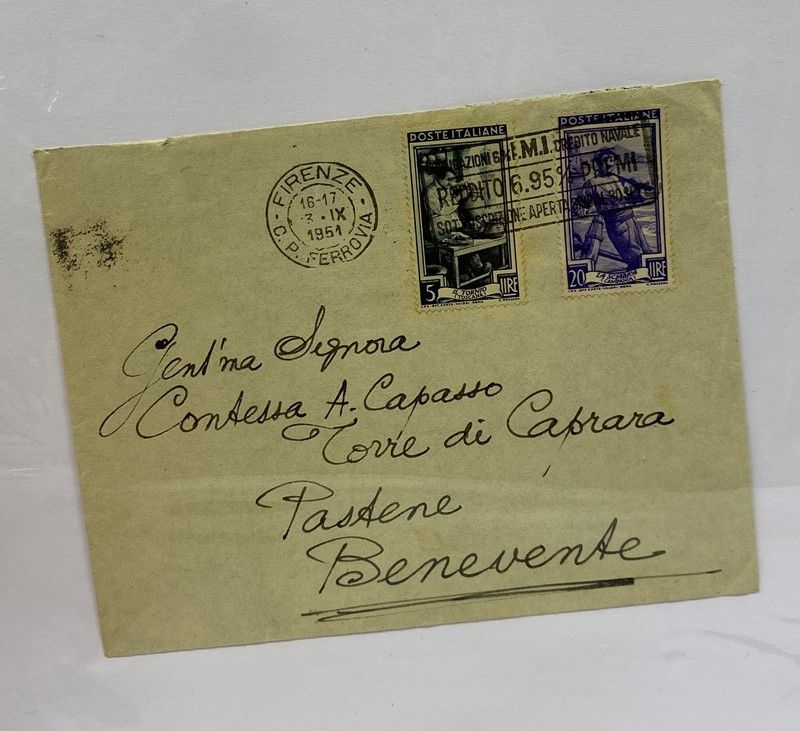 FIRENZE
16-17
3 · IX
1951
C.P. FERROVIA
POSTE ITALIANE
5 LIRE
IL TORNIO
TOSCANA
POSTE ITALIANE
20 LIRE
I.M.I. CREDITO NAVALE
REDDITO 6.95% PREMI
SOTTOSCRIZIONE APERTA
Gent'ma Signora
Contessa A. Capasso
Torre di Caprara
Pastene
Benevente